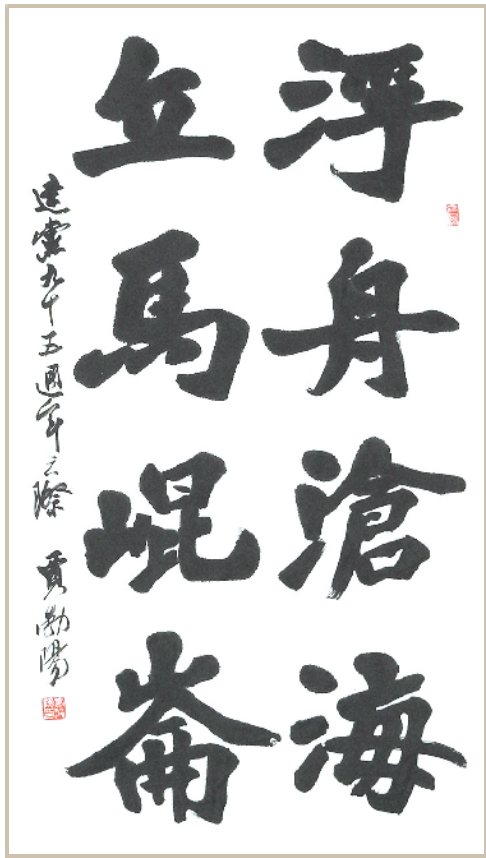 浮舟滄海
立馬崐崙
建黨九十五週年之際 賈勃陽